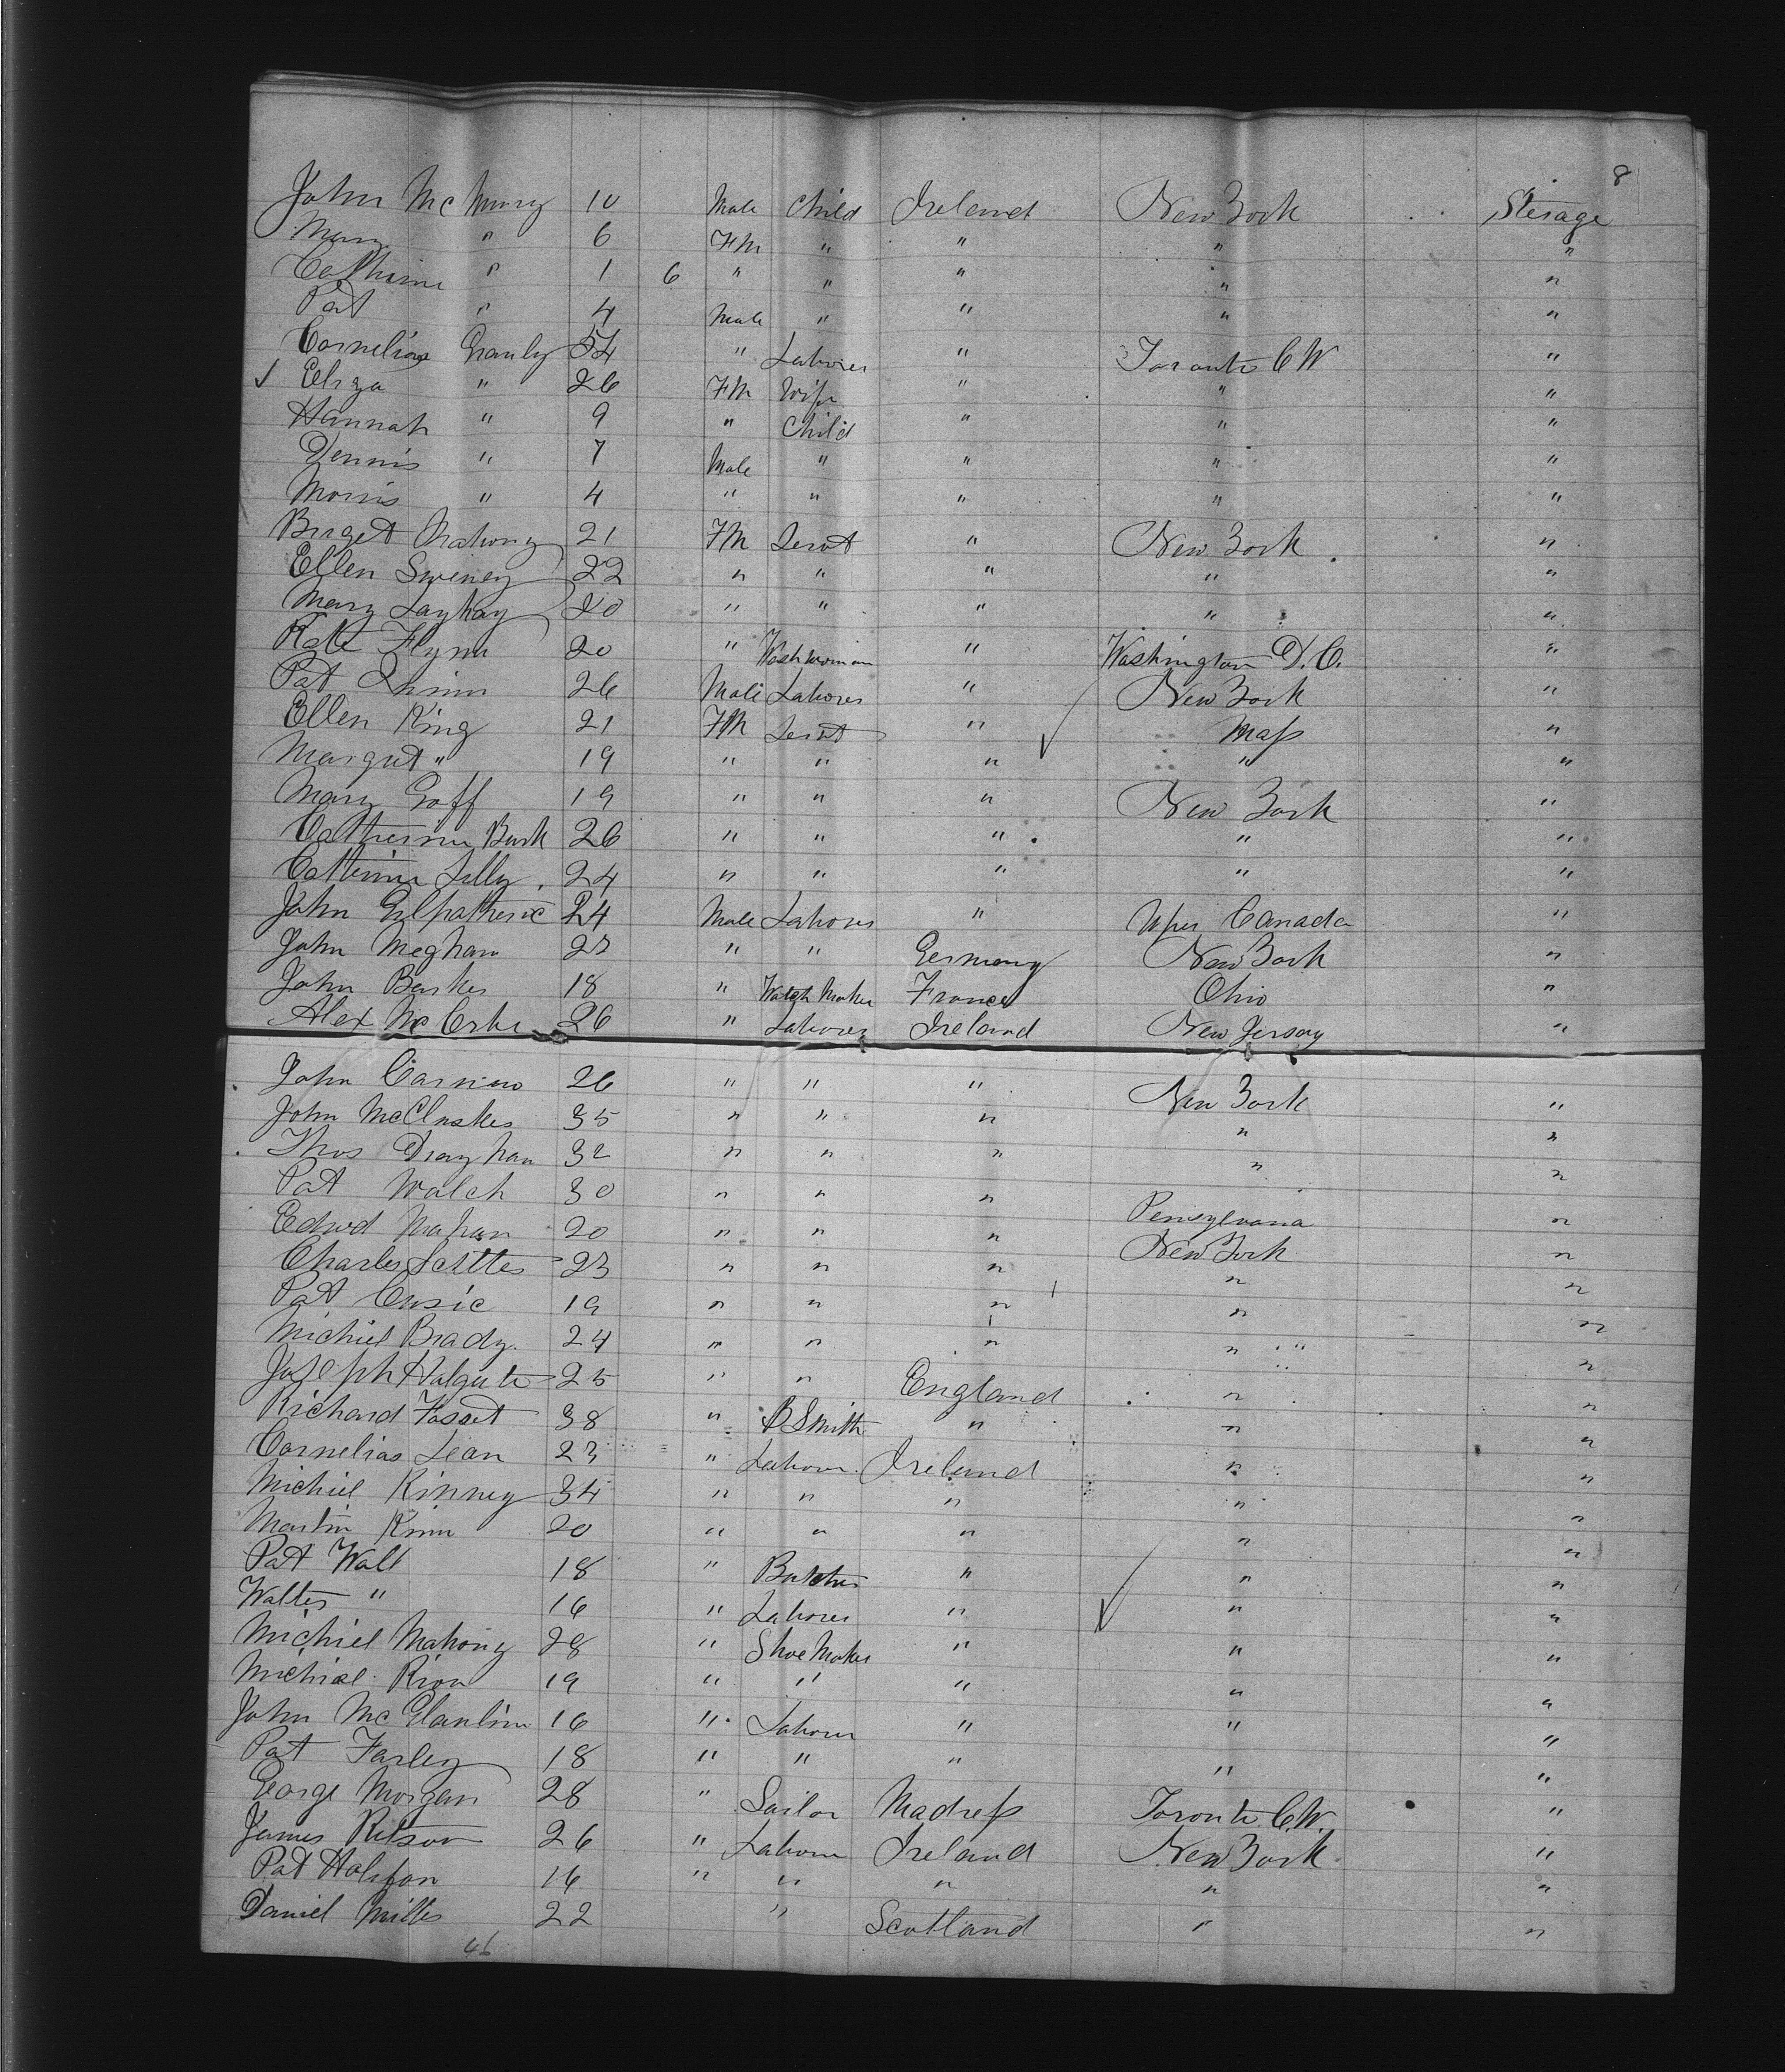 8
John Mc Murry 10 Male Child Ireland New York Sterage
Mary " 6 FM " " " "
Catherine " 1 6 " " " " "
Pat " 4 Male " " " "
Cornelius 34 " Laborer " Toronto C W "
Eliza " 26 FM Wife " " "
Hannah " 9 " Child " " "
Dennis " 7 Male " " " "
Morris " 4 " " " " "
Birget Mahony 21 FM Servt " New York "
Ellen Sweney 22 " " " " "
Mary 20 " " " " "
Kate Flynn 20 " Washwoman " Washington D.C. "
Pat Quinn 26 Male Laborer " New York "
Ellen King 21 FM Servt " Mass "
Margret " 19 " " " " "
Mary Goff 19 " " " New York "
Catherine Burk 26 " " " " "
Catherine Lilly 24 " " " " "
John Gilpatheric 24 Male Laborer " Uper Canada "
John Meghan 27 " " Germany New York "
John Barker 18 " Watch Maker France Ohio "
Alex 26 " Laborer Ireland New Jersey "
John 26 " " " New York "
John McCluskey 35 " " " " "
Thos 32 " " " " "
Pat Walch 30 " " " Pensylvania "
Edwd Mahan 20 " " " New York "
Charles 23 " " " " "
Pat Cusic 19 " " " " "
Michiel Brady 24 " " " " "
Joseph Halgate 25 " " England " "
Richard Fosset 38 " B Smith " " "
Cornelias Lean 23 " Laborer Ireland " "
Michiel Kinney 34 " " " " "
Martin Kinn 20 " " " " "
Pat Wall 18 " Butcher " " "
Walter " 16 " Laborer " " "
Michiel Mahony 28 " Shoe Maker " " "
Michiel Rion 19 " " " " "
John Mc Glanlin 16 " Laborer " " "
Pat Farley 18 " " " " "
George Morgan 28 " Sailor Madress Toronto C.W. "
James Ritson 26 " Laborer Ireland New York "
Pat 16 " " " " "
Daniel Miller 22 " Scotland " "
46